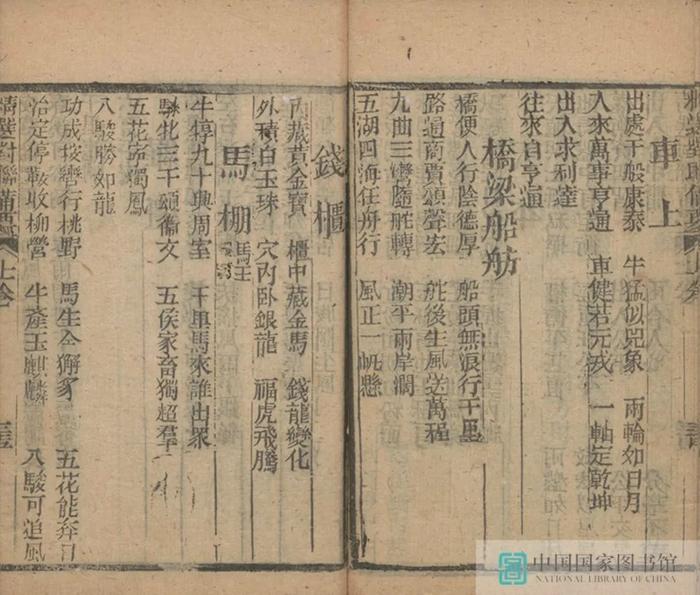 車上
出處千般康泰 牛猛似兕象 兩輪如日月
入來萬事亨通 車健若元戎 一軸定乾坤
出入求利達
往來自亨通
橋梁船舫
橋便人行陰德厚 船頭無浪行千里
路通商賈頌聲宏 舵後生風送萬程
九曲三灣隨舵轉 潮平兩岸濶
五湖四海任舟行 風正一帆懸
錢櫃
內藏黃金寶 櫃中藏金馬 錢龍變化
外積白玉珠 穴內臥銀龍 福虎飛騰
馬棚 馬王
牛犉九十典周室 千里馬來誰出眾
騋牝三千頌衞文 五侯家畜獨超羣
五花客獨鳳
八駿勝如龍
功成按轡行桃野 馬生金獬豸 五花能奔日
治定停鞍收柳營 牛產玉麒麟 八駿可追風
精選對聯備 上卷
中国国家图书馆
NATIONAL LIBRARY OF CHINA